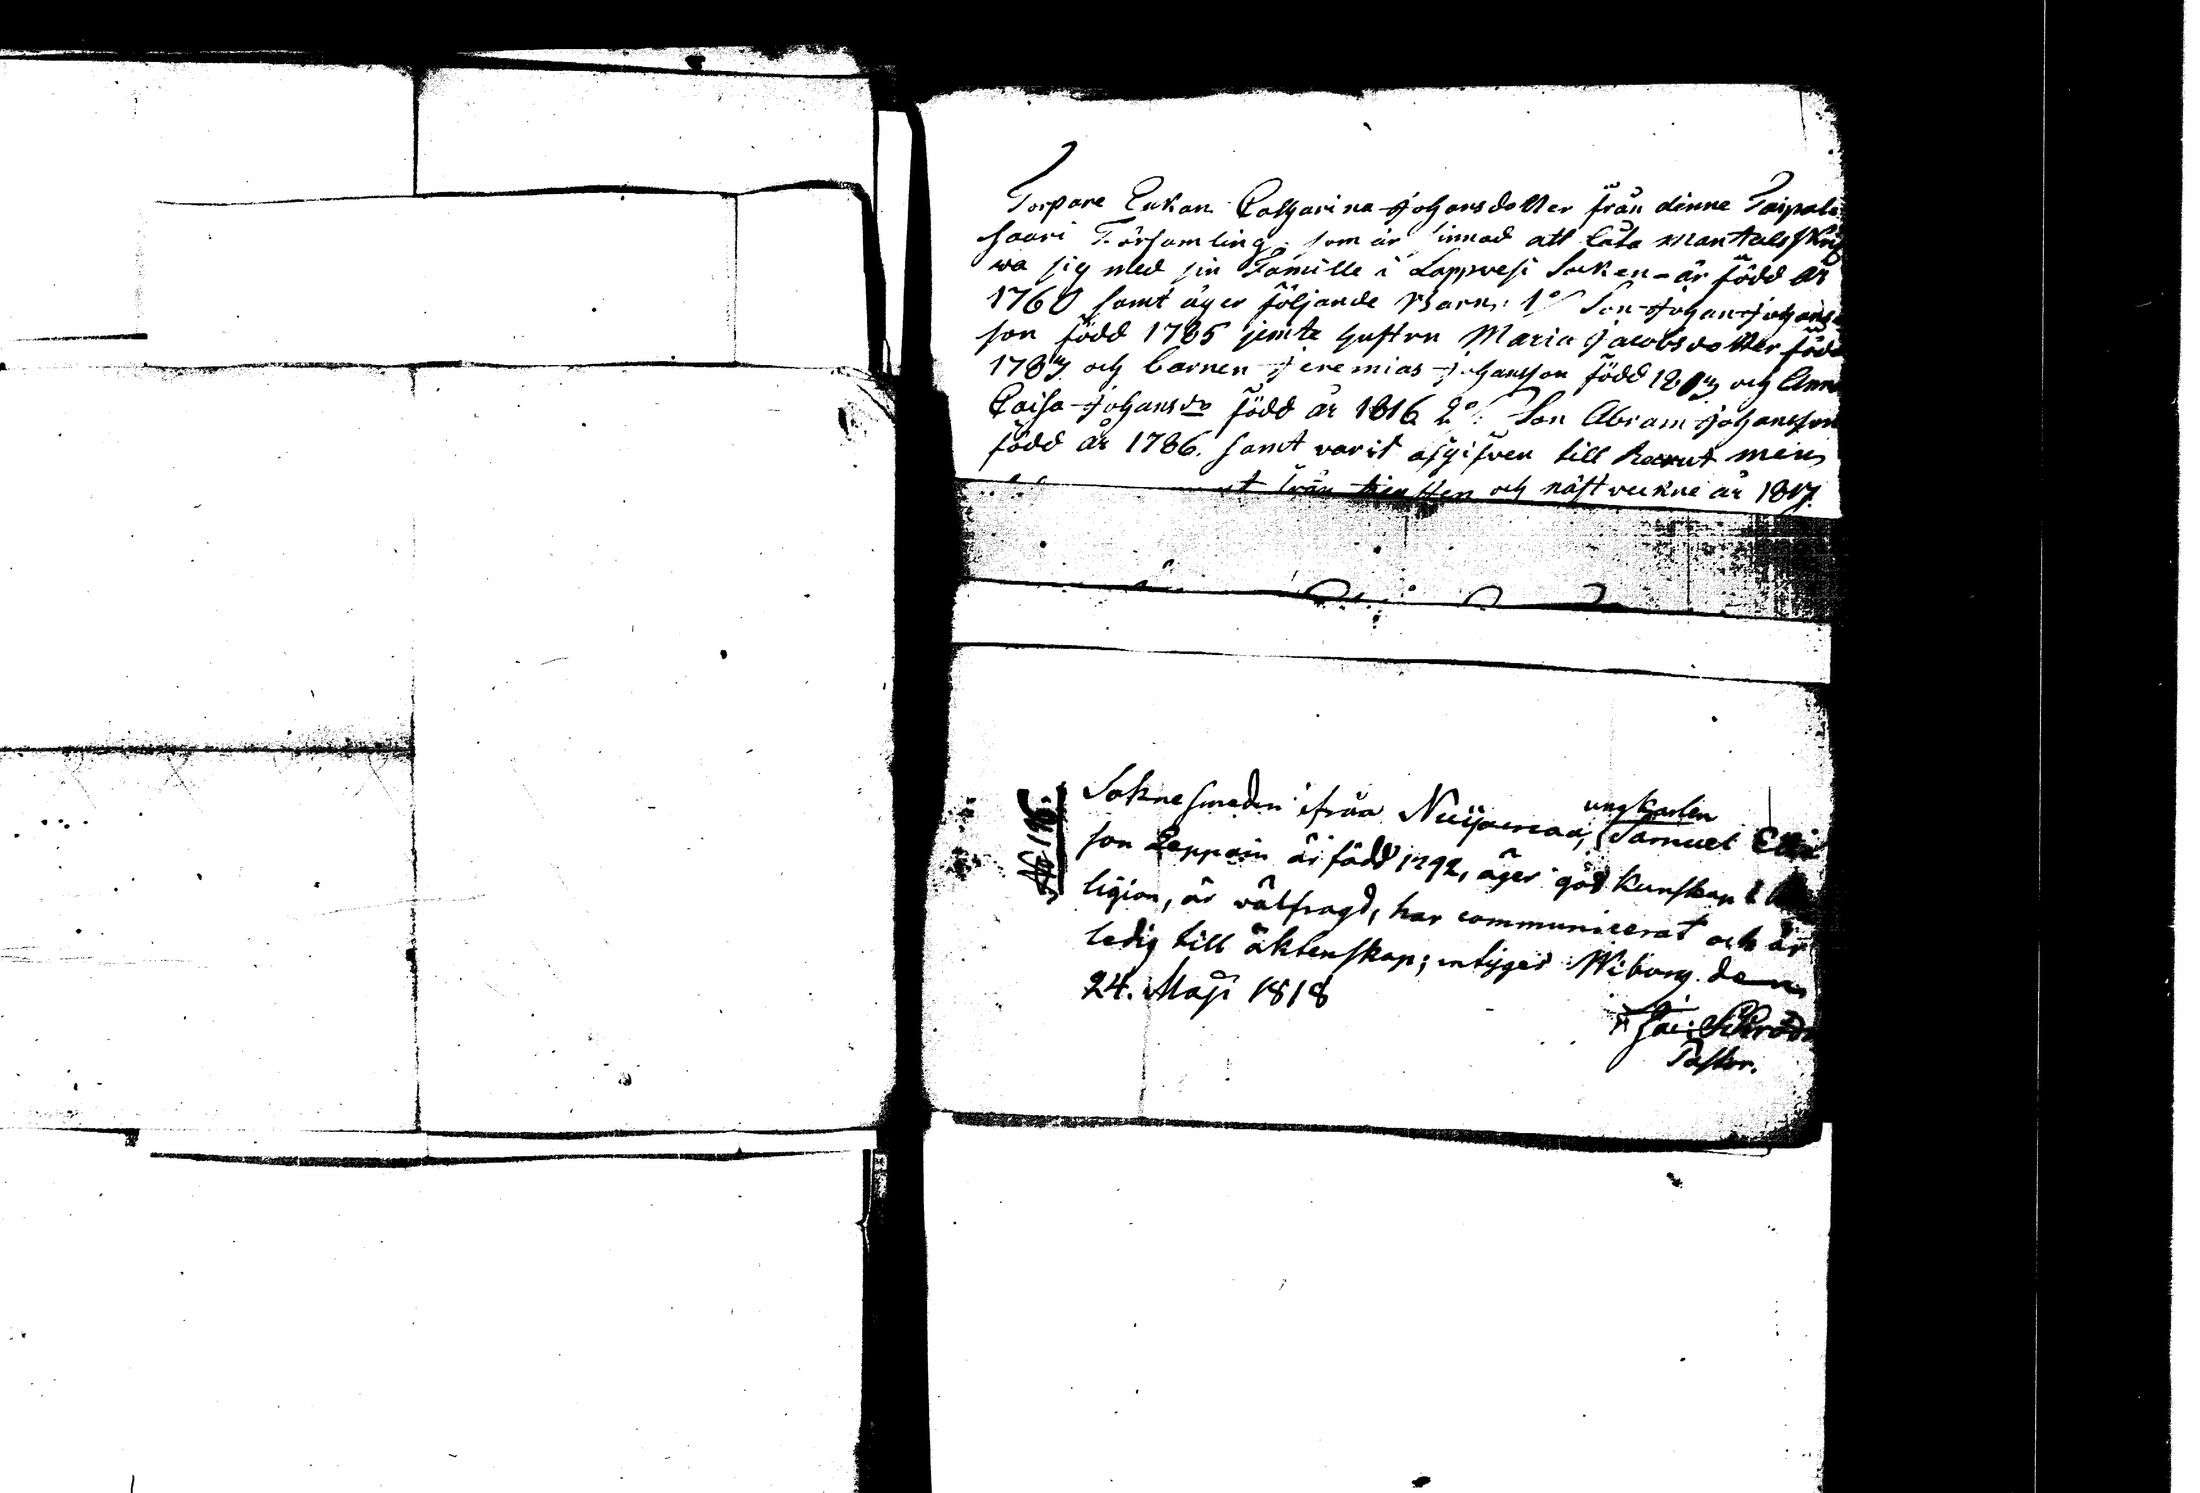 Torpare Enkan Catharina Johansdotter från denne Taipale
saari Församling, som är sinnad att låta Mantals skrif
wa sig med sin Famille i Lappvesi Socken - är född år
1760 samt äger följande Barn: 1:o Son Johan Johans
son född 1785 jemte hustru Maria Jacobsdotter född
1787 och barnen Jeremias Johansson född 1807 och Anna
Caisa Johansdr född år 1816 2:o Son Abram Johansson
född år 1786. samt varit afgifven till Recrut men
från tiensten och näst veckne år 1817.
No 175.
Soknesmeden ifrån Nuijamaa, ungkarlen Samuel
son Leppäin är född 1792, äger god kunskap i
ligion, är wälfragd, har communicerat och är
ledig till äktenskap; intyges Wiborg den
24. Maji 1818
Pastor.